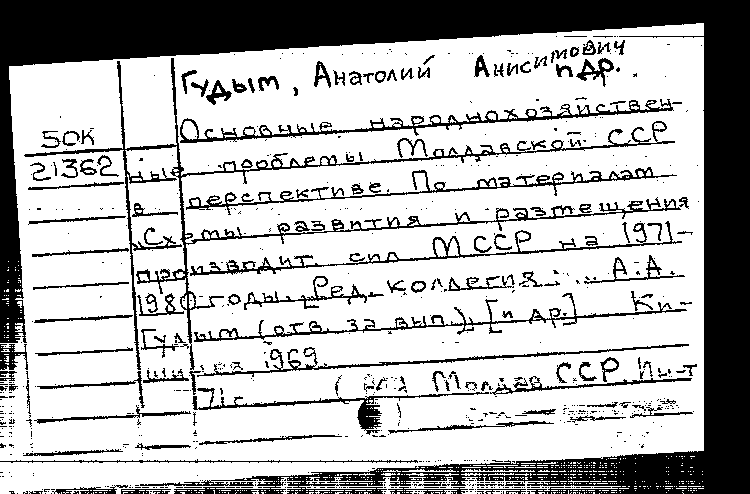 Гудым, Анатолий Анисимович
и др.
50К
Основные народнохозяйствен-
21362
ные проблемы Молдавской ССР
в перспективе. По материалам
„Схемы развития и размещения
производит. сил МССР на 1971-
1980 годы. Ред. коллегия: ... А.А.
Гудым (отв. за вып.), [и др.] Ки-
шинев 1969.
71 с. ( Молдав ССР. Ин-т